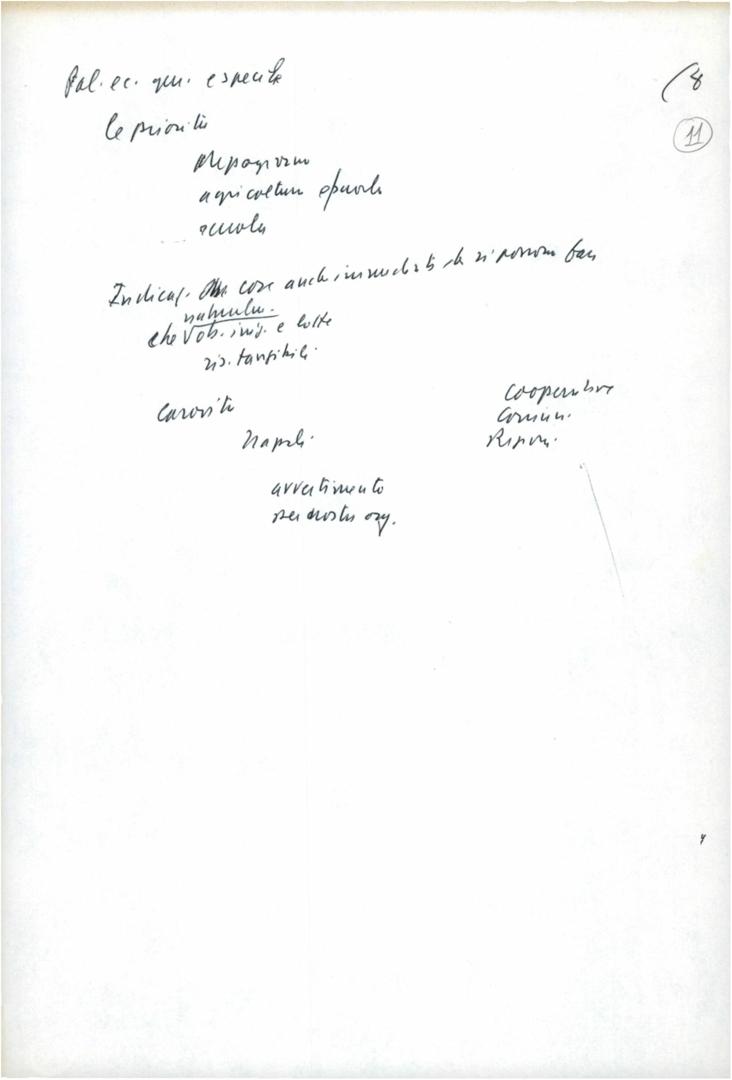 (8
11
Pol. ec. gen. e speciale
le priorità
Mezzogiorno
agricoltura
scuola
Indicaz. cose anche immediate che si possono fare
naturalm.
che ob. e lotte
ris. tangibili
Carovita
Cooperative
Comuni
Napoli
Regioni
avvertimento
per nostre org.